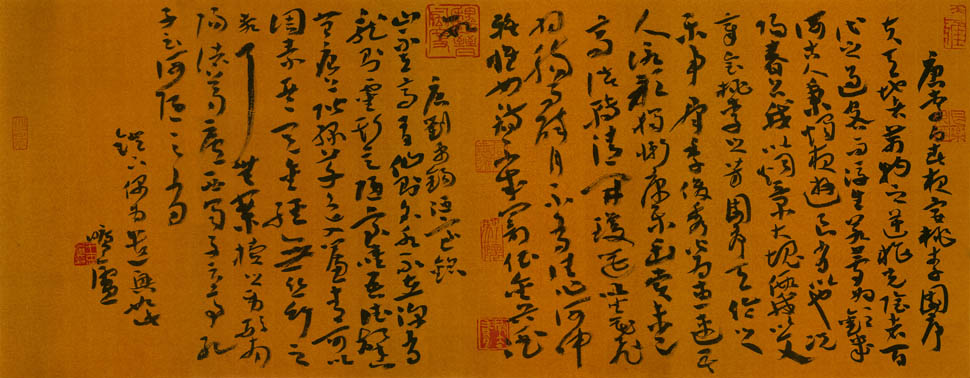 唐李白春夜宴桃李園序
夫天地者萬物之逆旅光陰者百
代之過客而浮生若夢為歡幾
何古人秉燭夜遊良有以也況
陽春召我以煙景大塊假我以文
章會桃李之芳園序天倫之
樂事群季俊秀皆為惠連吾
人詠歌獨慚康樂幽賞未已
高談轉清開瓊筵以坐花飛
羽觴而醉月不有佳作何伸
雅懷如詩不成罰依金谷酒
數
唐劉禹錫陋室銘
山不在高有仙則名水不在深有
龍則靈斯是陋室惟吾德馨
苔痕上階綠草色入簾青可以
調素琴閱金經無絲竹之
亂耳無案牘之勞形南
陽諸葛廬西蜀子雲亭孔
子云何陋之有
鐙下偶為遣興